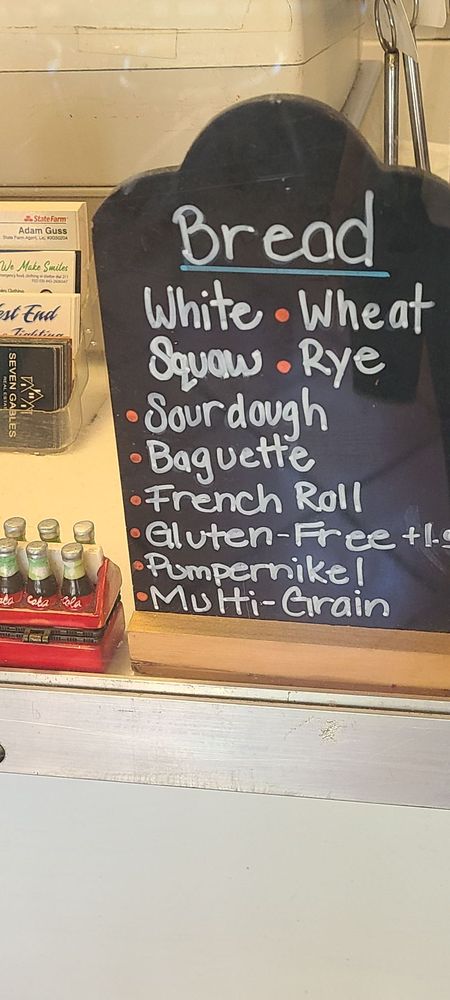 Bread
White • Wheat
Squaw • Rye
• Sourdough
• Baguette
• French Roll
• Gluten-Free +1.
• Pumpernikel
• Multi-Grain
StateFarm
Adam Guss
State Farm Agent
We Make Smiles
West End
SEVEN GABLES
REAL ESTATE
Cola
Cola